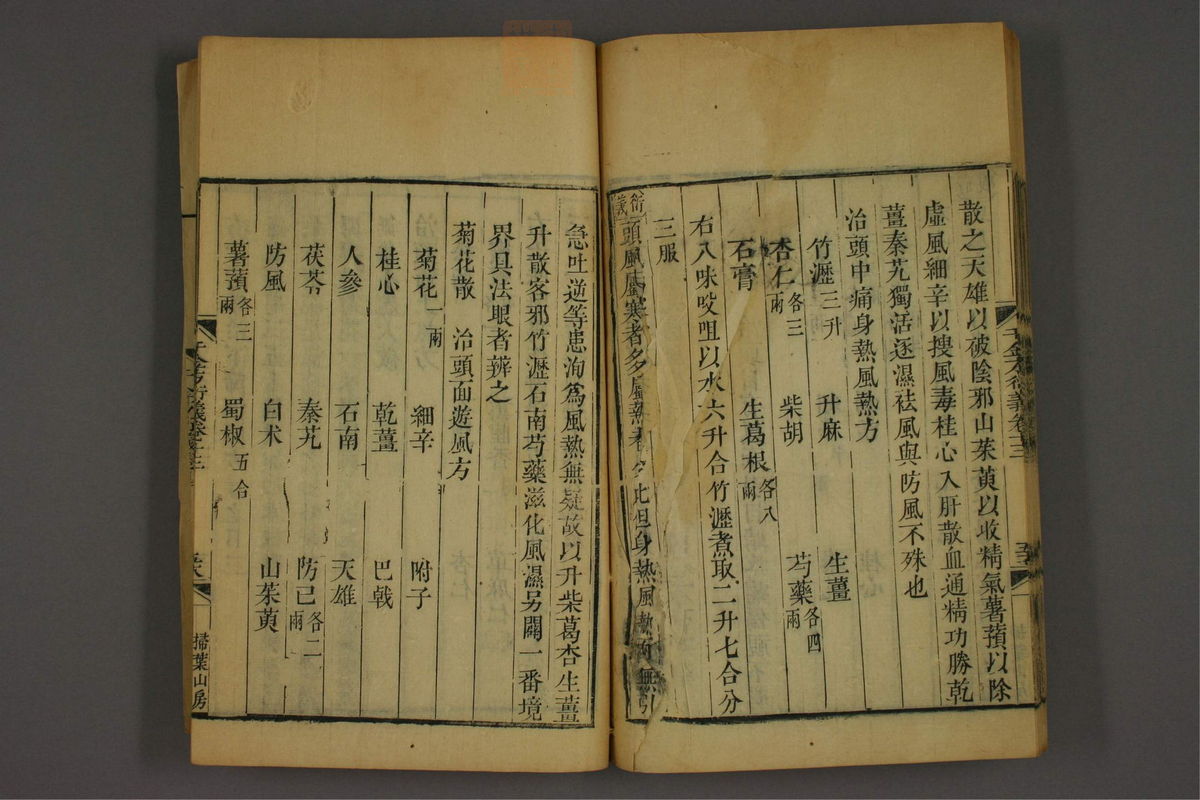 散之天雄以破陰邪山茱萸以收精氣薯蕷以除
虛風細辛以搜風毒桂心入肝散血通精功勝乾
薑秦艽獨活逐濕祛風與防風不殊也
治頭中痛身熱風熱方
竹瀝三升 升麻 生薑
杏仁各三兩 柴胡 芍藥各四兩
石膏 生葛根各八兩
右八味㕮咀以水六升合竹瀝煮取二升七合分
三服
衍義頭風屬寒者多屬熱者少此但身熱風熱而無
急吐逆等患洵為風熱無疑故以升柴葛杏生薑
升散客邪竹瀝石南芍藥滋化風濕另開一番境
界具法眼者辨之
菊花散 治頭面遊風方
菊花一兩 細辛 附子
桂心 乾薑 巴戟
人參 石南 天雄
茯苓 秦艽 防己各二兩
防風 白术 山茱萸
薯蕷各三兩 蜀椒五合
千金方衍義卷十三
掃葉山房